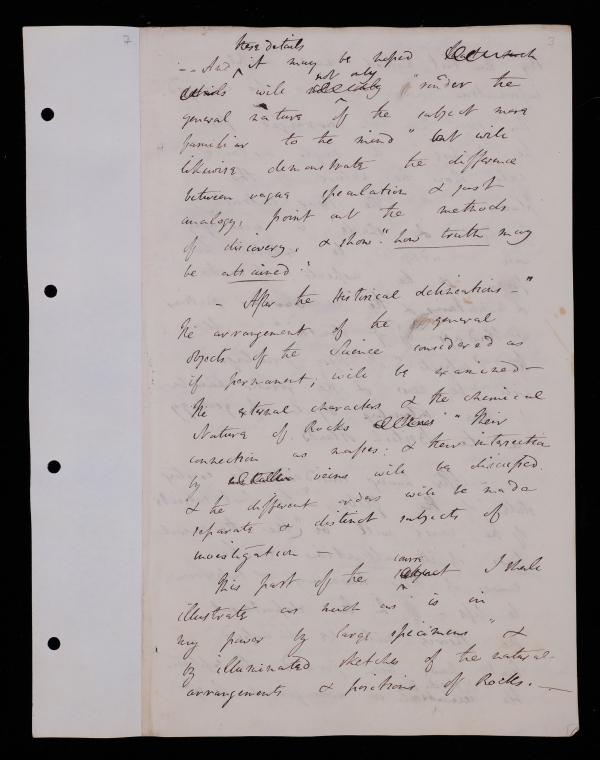 7
3
these details
-- And it may be hoped
will not only "render the
general nature of the subject more
familiar to the mind" but will
likewise demonstrate the difference
between vague speculation & just
analogy, point out the methods
of discovery, & show "how truth may
be attained."
- After the Historical delineations -"
the arrangement of the general
objects of the Science considered as
if permanent; will be examined -
the external characters & the chemical
Nature of Rocks " their
connection as masses: & their intersection
by metallic veins will be discussed.
& the different orders will be made
separate & distinct subjects of
investigation -
course
This part of the I shall
illustrate as much as is in
my power by large specimens " &
by illuminated sketches of the natural
arrangements & positions of Rocks. -